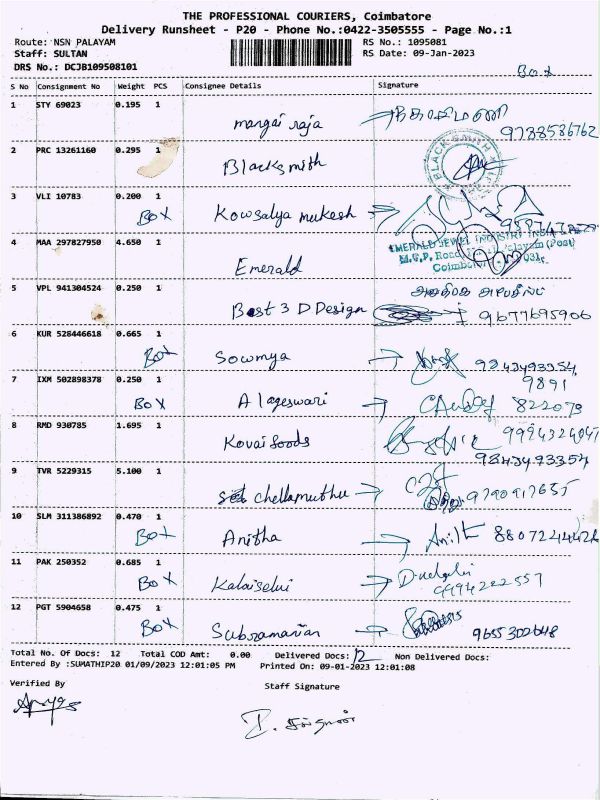 THE PROFESSIONAL COURIERS, Coimbatore
Delivery Runsheet - P20 - Phone No.:0422-3505555 - Page No.:1
Route: NSN PALAYAM RS No.: 1095081
Staff: SULTAN RS Date: 09-Jan-2023
DRS No.: DCJB109508101
Box
S No Consignment No Weight PCS Consignee Details Signature
1 STY 69023 0.195 1
mangai raja 9788536762
2 PRC 13261160 0.295 1
Blacksmith BLACK SMITH
3 VLI 10783 0.200 1
Box Kowsalya mukesh
4 MAA 297827950 4.650 1 EMERALD JEWEL INDUSTRY INDIA
M.G.P. Road
Emerald Coimbatore
5 VPL 941304524 0.250 1
Best 3 D Design 9677695906
6 KUR 528446618 0.665 1
Box Sowmya 9843493354
7 IXM 502898378 0.250 1 9891
Box Alageswari 822079
8 RMD 930785 1.695 1 9994324047
Kovai foods 9843493354
9 TVR 5229315 5.100 1
chellamuthu 9790917655
10 SLM 311386892 0.470 1
Box Anitha 8807244424
11 PAK 250352 0.685 1
Box Kalaiselvi 9994222557
12 PGT 5904658 0.475 1
Box Subramanian 9655302648
Total No. Of Docs: 12 Total COD Amt: 0.00 Delivered Docs: 12 Non Delivered Docs:
Entered By :SUMATHIP20 01/09/2023 12:01:05 PM Printed On: 09-01-2023 12:01:08
Verified By Staff Signature